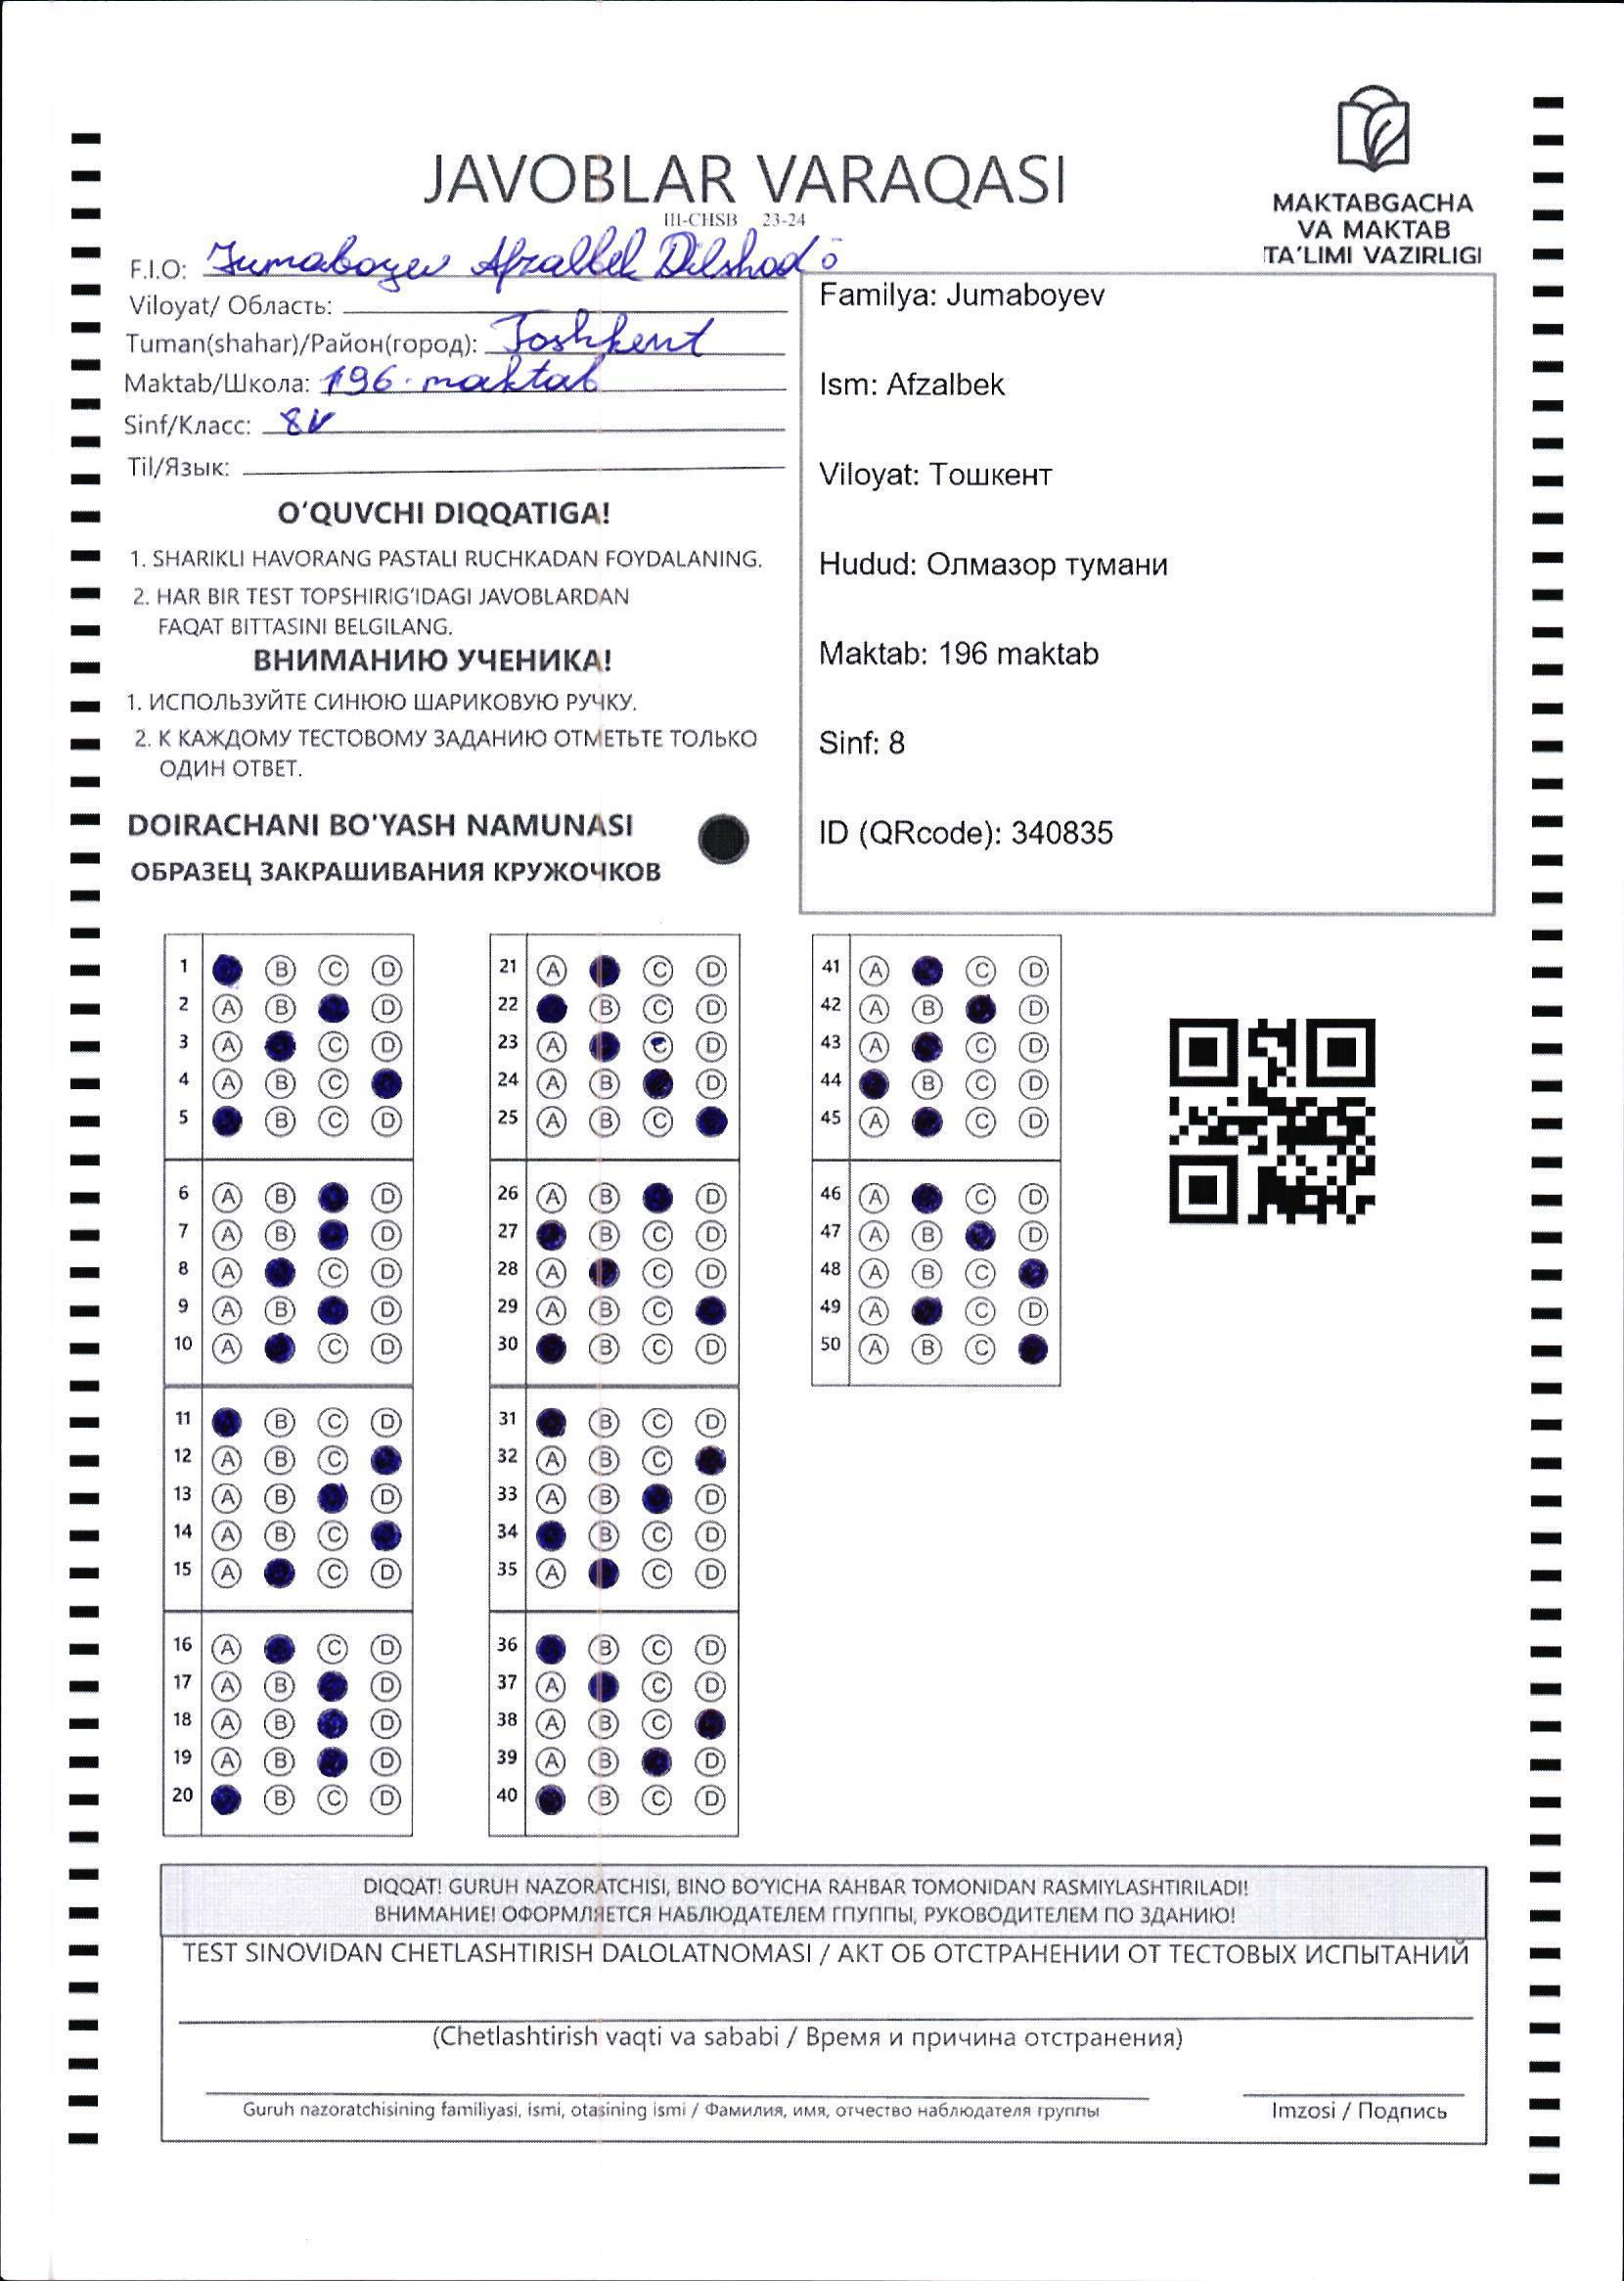 JAVOBLAR VARAQASI
III-CHSB 23-24
MAKTABGACHA
VA MAKTAB
TA'LIMI VAZIRLIGI
F.I.O: Jumaboyev Afzalbek Dilshod o
Viloyat/ Область:
Tuman(shahar)/Район(город): Toshkent
Maktab/Школа: 196 maktab
Sinf/Класс: 8V
Til/Язык:
O'QUVCHI DIQQATIGA!
1. SHARIKLI HAVORANG PASTALI RUCHKADAN FOYDALANING.
2. HAR BIR TEST TOPSHIRIG'IDAGI JAVOBLARDAN
FAQAT BITTASINI BELGILANG.
ВНИМАНИЮ УЧЕНИКА!
1. ИСПОЛЬЗУЙТЕ СИНЮЮ ШАРИКОВУЮ РУЧКУ.
2. К КАЖДОМУ ТЕСТОВОМУ ЗАДАНИЮ ОТМЕТЬТЕ ТОЛЬКО
ОДИН ОТВЕТ.
DOIRACHANI BO'YASH NAMUNASI
ОБРАЗЕЦ ЗАКРАШИВАНИЯ КРУЖОЧКОВ
Familya: Jumaboyev
Ism: Afzalbek
Viloyat: Тошкент
Hudud: Олмазор тумани
Maktab: 196 maktab
Sinf: 8
ID (QRcode): 340835
1 B C D
2 A B D
3 A C D
4 A B C
5 B C D
6 A B D
7 A B D
8 A C D
9 A B D
10 A C D
11 B C D
12 A B C
13 A B D
14 A B C
15 A C D
16 A C D
17 A B D
18 A B D
19 A B D
20 B C D
21 A C D
22 B C D
23 A C D
24 A B D
25 A B C
26 A B D
27 B C D
28 A C D
29 A B C
30 B C D
31 B C D
32 A B C
33 A B D
34 B C D
35 A C D
36 B C D
37 A C D
38 A B C
39 A B D
40 B C D
41 A C D
42 A B D
43 A C D
44 B C D
45 A C D
46 A C D
47 A B D
48 A B C
49 A C D
50 A B C
DIQQAT! GURUH NAZORATCHISI, BINO BO'YICHA RAHBAR TOMONIDAN RASMIYLASHTIRILADI!
ВНИМАНИЕ! ОФОРМЛЯЕТСЯ НАБЛЮДАТЕЛЕМ ГПУППЫ, РУКОВОДИТЕЛЕМ ПО ЗДАНИЮ!
TEST SINOVIDAN CHETLASHTIRISH DALOLATNOMASI / АКТ ОБ ОТСТРАНЕНИИ ОТ ТЕСТОВЫХ ИСПЫТАНИЙ
(Chetlashtirish vaqti va sababi / Время и причина отстранения)
Guruh nazoratchisining familiyasi, ismi, otasining ismi / Фамилия, имя, отчество наблюдателя группы
Imzosi / Подпись